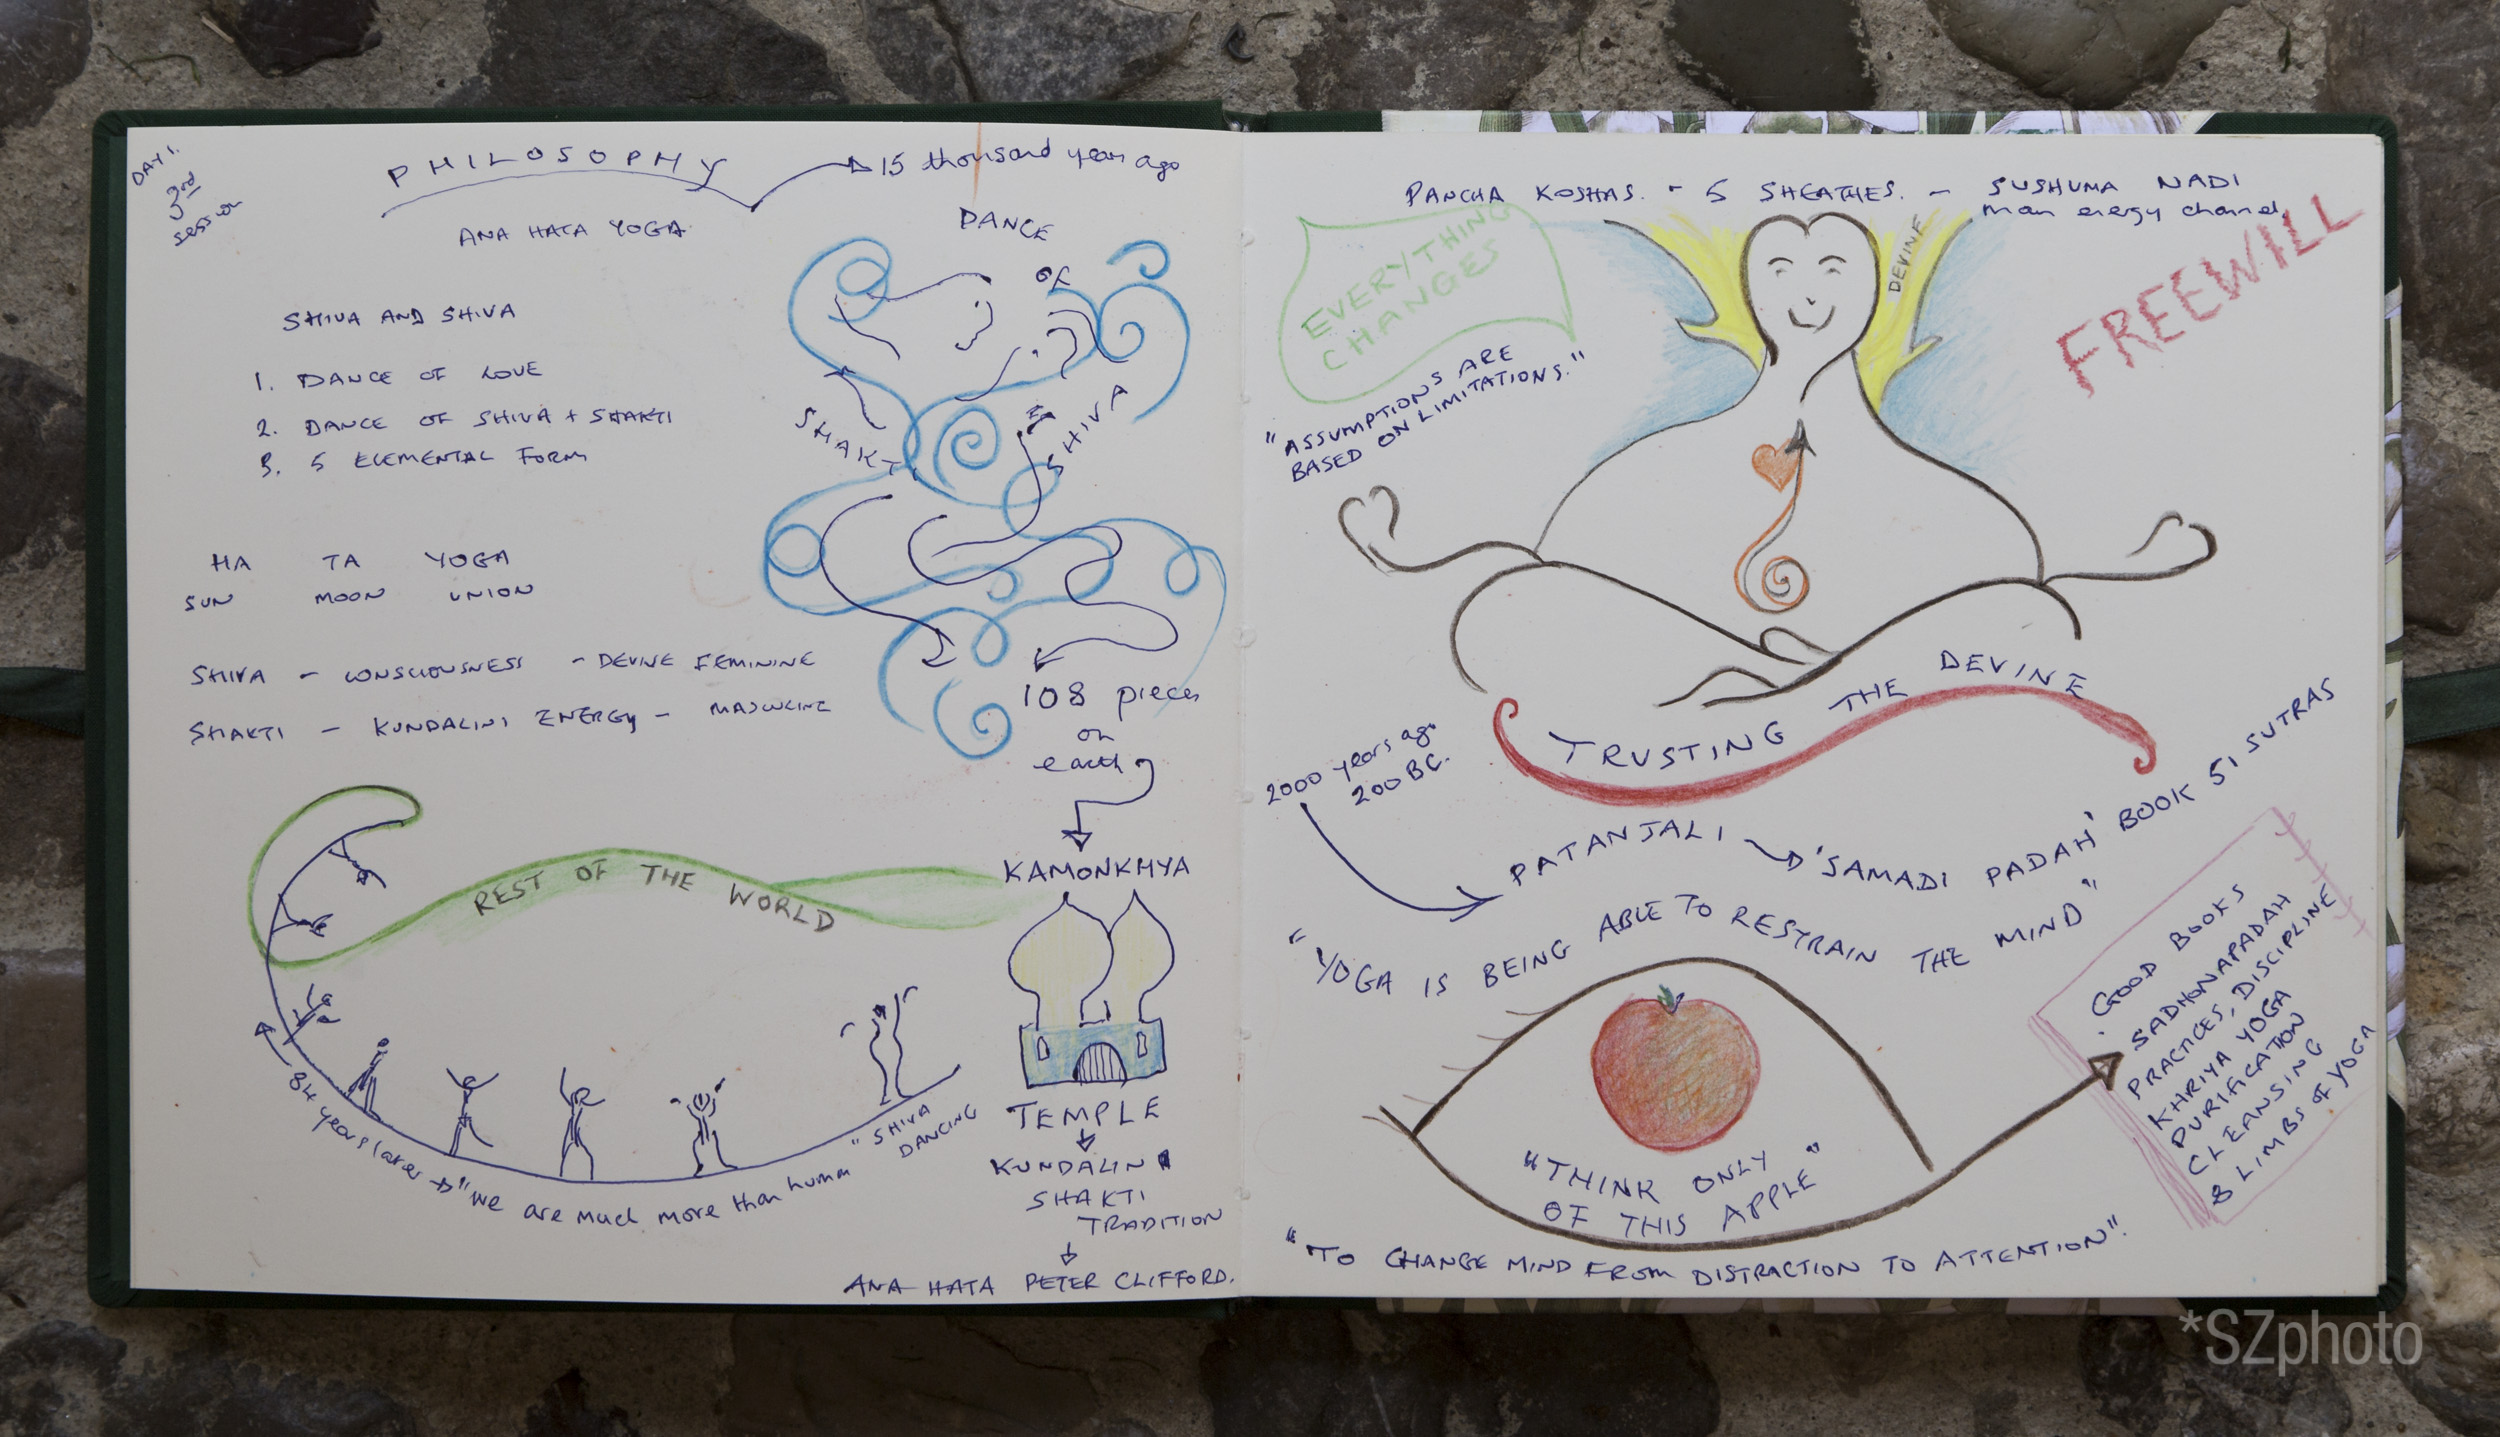 DAY 1.
3rd
session
PHILOSOPHY
15 thousand years ago
ANA HATA YOGA
SHIVA AND SHIVA
1. DANCE OF LOVE
2. DANCE OF SHIVA + SHAKTI
3. 5 ELEMENTAL FORM
HA TA YOGA
SUN MOON UNION
SHIVA - CONSCIOUSNESS - DEVINE FEMININE
SHAKTI - KUNDALINI ENERGY - MASCULINE
DANCE
OF
SHAKTI
SHIVA
108 pieces
on
earth
KAMONKHYA
TEMPLE
KUNDALINI
SHAKTI
TRADITION
ANA HATA PETER CLIFFORD.
REST OF THE WORLD
84 years later
"we are much more than human"
SHIVA
DANCING
PANCHA KOSHAS. - 5 SHEATHES. - SUSHUMA NADI
man energy channel.
EVERYTHING
CHANGES
DEVINE
FREEWILL
"ASSUMPTIONS ARE
BASED ON LIMITATIONS."
TRUSTING THE DEVINE
2000 years ago
200 BC.
PATANJALI
'SAMADI PADAH' BOOK 51 SUTRAS
"YOGA IS BEING ABLE TO RESTRAIN THE MIND"
"THINK ONLY
OF THIS APPLE"
. GOOD BOOKS
SADHONAPADAH
PRACTICES, DISCIPLINE
KHRIYA YOGA
PURIFICATION
CLEANSING
8 LIMBS OF YOGA
"TO CHANGE MIND FROM DISTRACTION TO ATTENTION".
*SZphoto